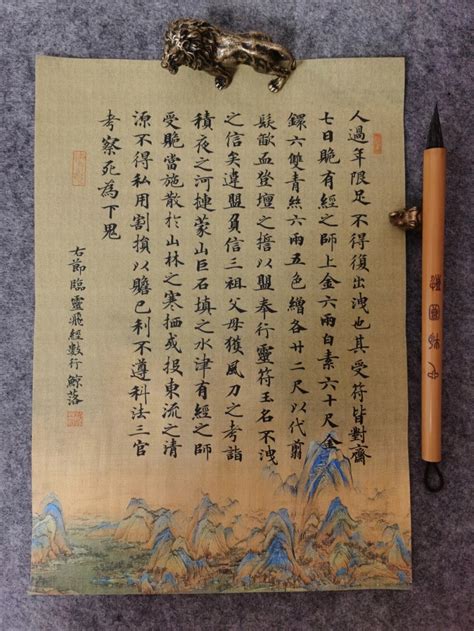 人過年限足不得復出洩也其受符皆對齋
七日賂有經之師上金六兩白素六十尺金
鐶六雙青絲六兩五色繒各廿二尺以代翦
髮歃血登壇之誓以盟奉行靈符玉名不洩
之信矣違盟負信三祖父母獲風刀之考詣
積夜之河揵蒙山巨石填之水津有經之師
受賂當施散於山林之寒栖或投東流之清
源不得私用割損以贍己利不遵科法三官
考察死為下鬼
右節臨靈飛經數行 鯨落